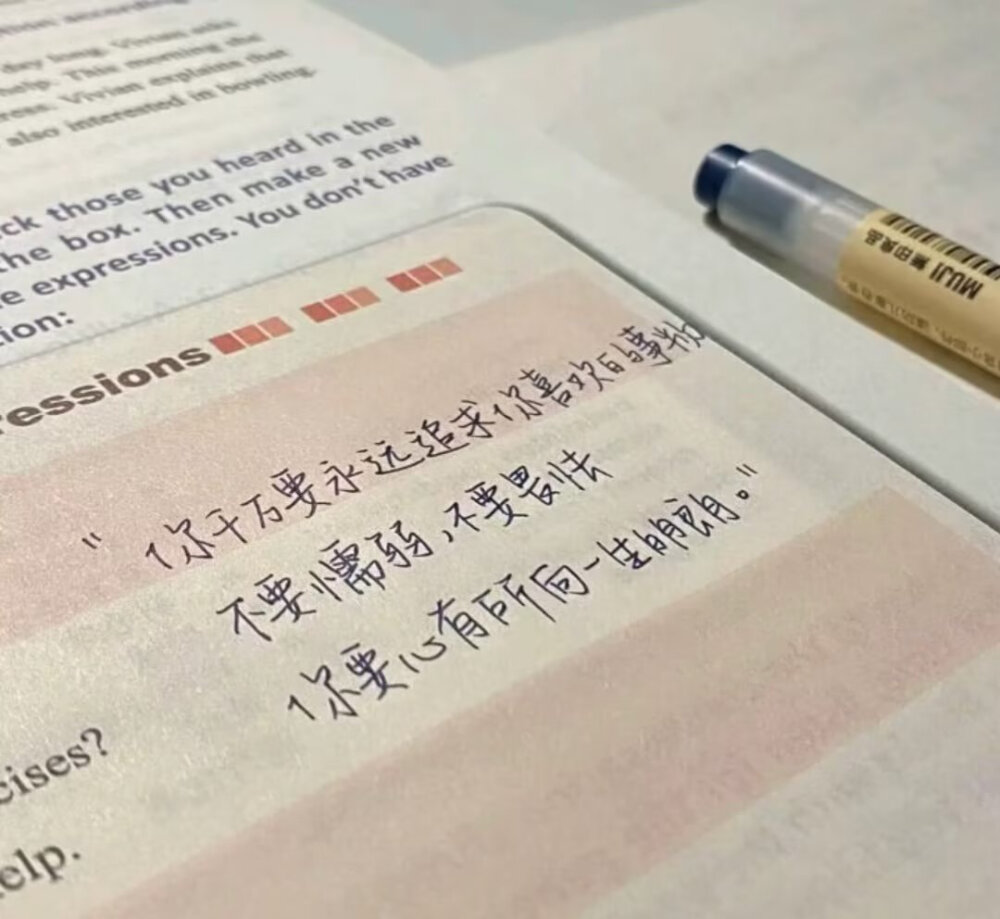 day long. Vivian asks
help. This morning the
Vivian explains that
also interested in bowling.
ck those you heard in the
the box. Then make a new
e expressions. You don't have
tion:
ressions
"你千万要永远追求你喜欢的事物
不要懦弱,不要畏怯
你要心有所向一生明朗。"
cises?
elp.
MUJI 無印良品